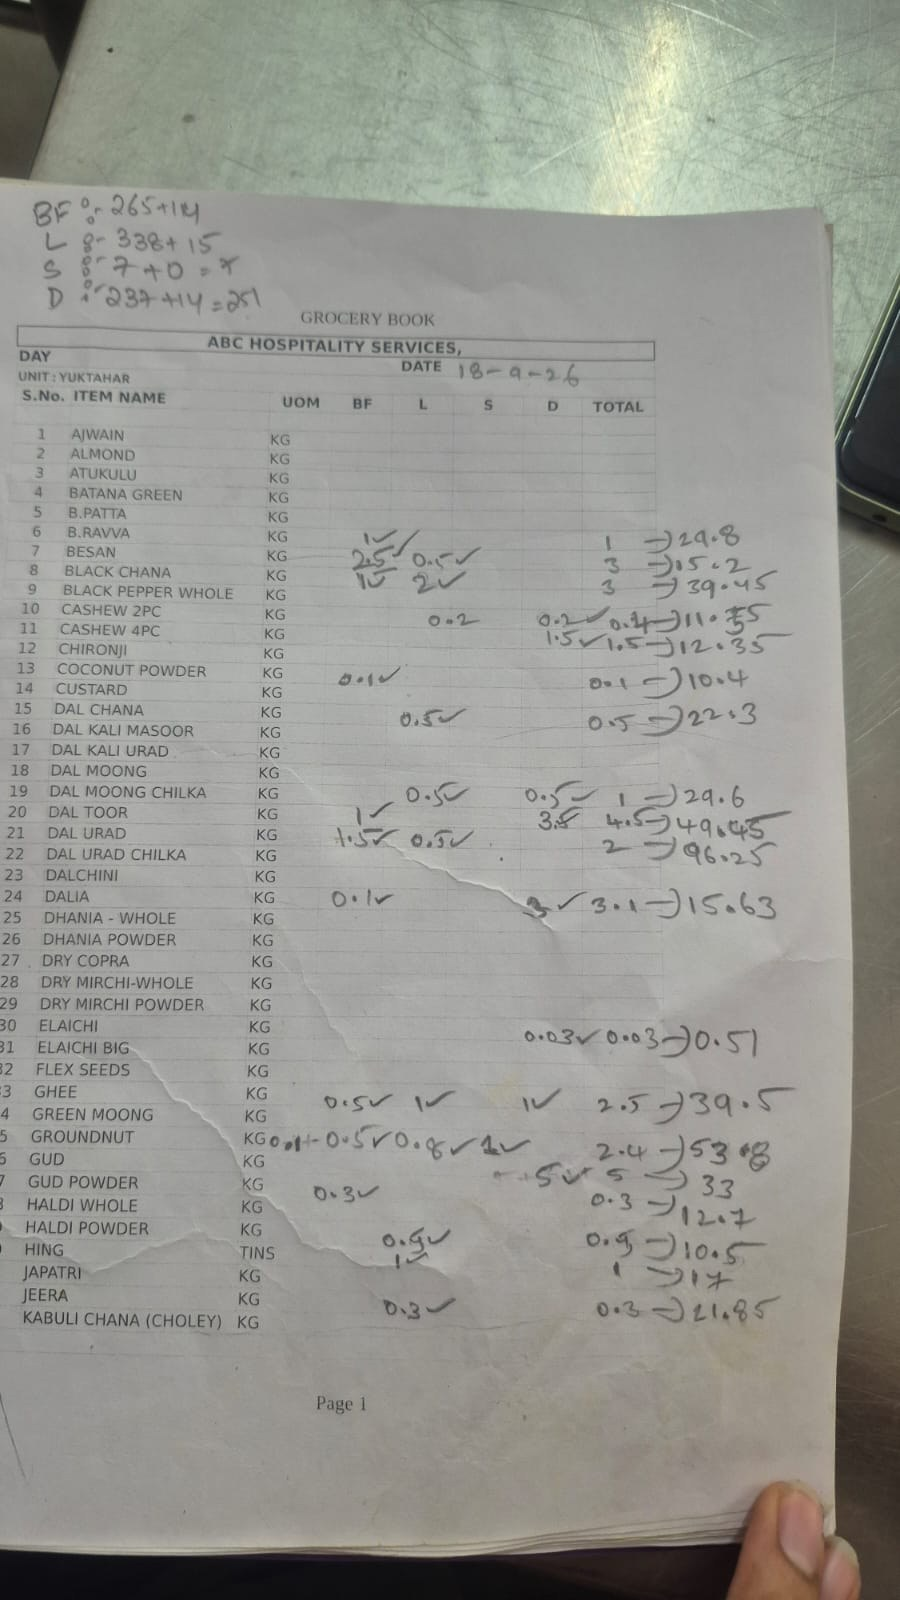 BF :- 265+14
L :- 338+15
S :- 7+0=7
D :- 237+14=251
GROCERY BOOK
ABC HOSPITALITY SERVICES,
DAY DATE 18-9-26
UNIT : YUKTAHAR
S.No. ITEM NAME UOM BF L S D TOTAL
1 AJWAIN KG
2 ALMOND KG
3 ATUKULU KG
4 BATANA GREEN KG
5 B.PATTA KG
6 B.RAVVA KG 1✓ 1 → 29.8
7 BESAN KG 2.5✓ 0.5✓ 3 → 15.2
8 BLACK CHANA KG 1✓ 2✓ 3 → 39.45
9 BLACK PEPPER WHOLE KG
10 CASHEW 2PC KG 0.2 0.2✓ 0.4 →
11 CASHEW 4PC KG 1.5✓ 1.5 → 12.35
12 CHIRONJI KG
13 COCONUT POWDER KG 0.1✓ 0.1 → 10.4
14 CUSTARD KG
15 DAL CHANA KG 0.5✓ 0.5 → 22.3
16 DAL KALI MASOOR KG
17 DAL KALI URAD KG
18 DAL MOONG KG
19 DAL MOONG CHILKA KG 0.5✓ 0.5✓ 1 → 29.6
20 DAL TOOR KG 1✓ 3.5 4.5 → 49.45
21 DAL URAD KG 1.5✓ 0.5✓ 2 → 96.25
22 DAL URAD CHILKA KG
23 DALCHINI KG
24 DALIA KG 0.1✓ 3✓ 3.1 → 15.63
25 DHANIA - WHOLE KG
26 DHANIA POWDER KG
27 DRY COPRA KG
28 DRY MIRCHI-WHOLE KG
29 DRY MIRCHI POWDER KG
30 ELAICHI KG 0.03✓ 0.03 → 0.51
31 ELAICHI BIG KG
32 FLEX SEEDS KG
33 GHEE KG 0.5✓ 1✓ 1✓ 2.5 → 39.5
4 GREEN MOONG KG
5 GROUNDNUT KG 0.1+0.5✓ 0.8✓ 1✓ 2.4 → 53.8
6 GUD KG 5✓ 5 → 33
7 GUD POWDER KG 0.3✓ 0.3 → 12.7
HALDI WHOLE KG
HALDI POWDER KG 0.9✓ 0.9 → 10.5
HING TINS 1✓ 1 → 17
JAPATRI KG
JEERA KG 0.3✓ 0.3 → 21.85
KABULI CHANA (CHOLEY) KG
Page 1